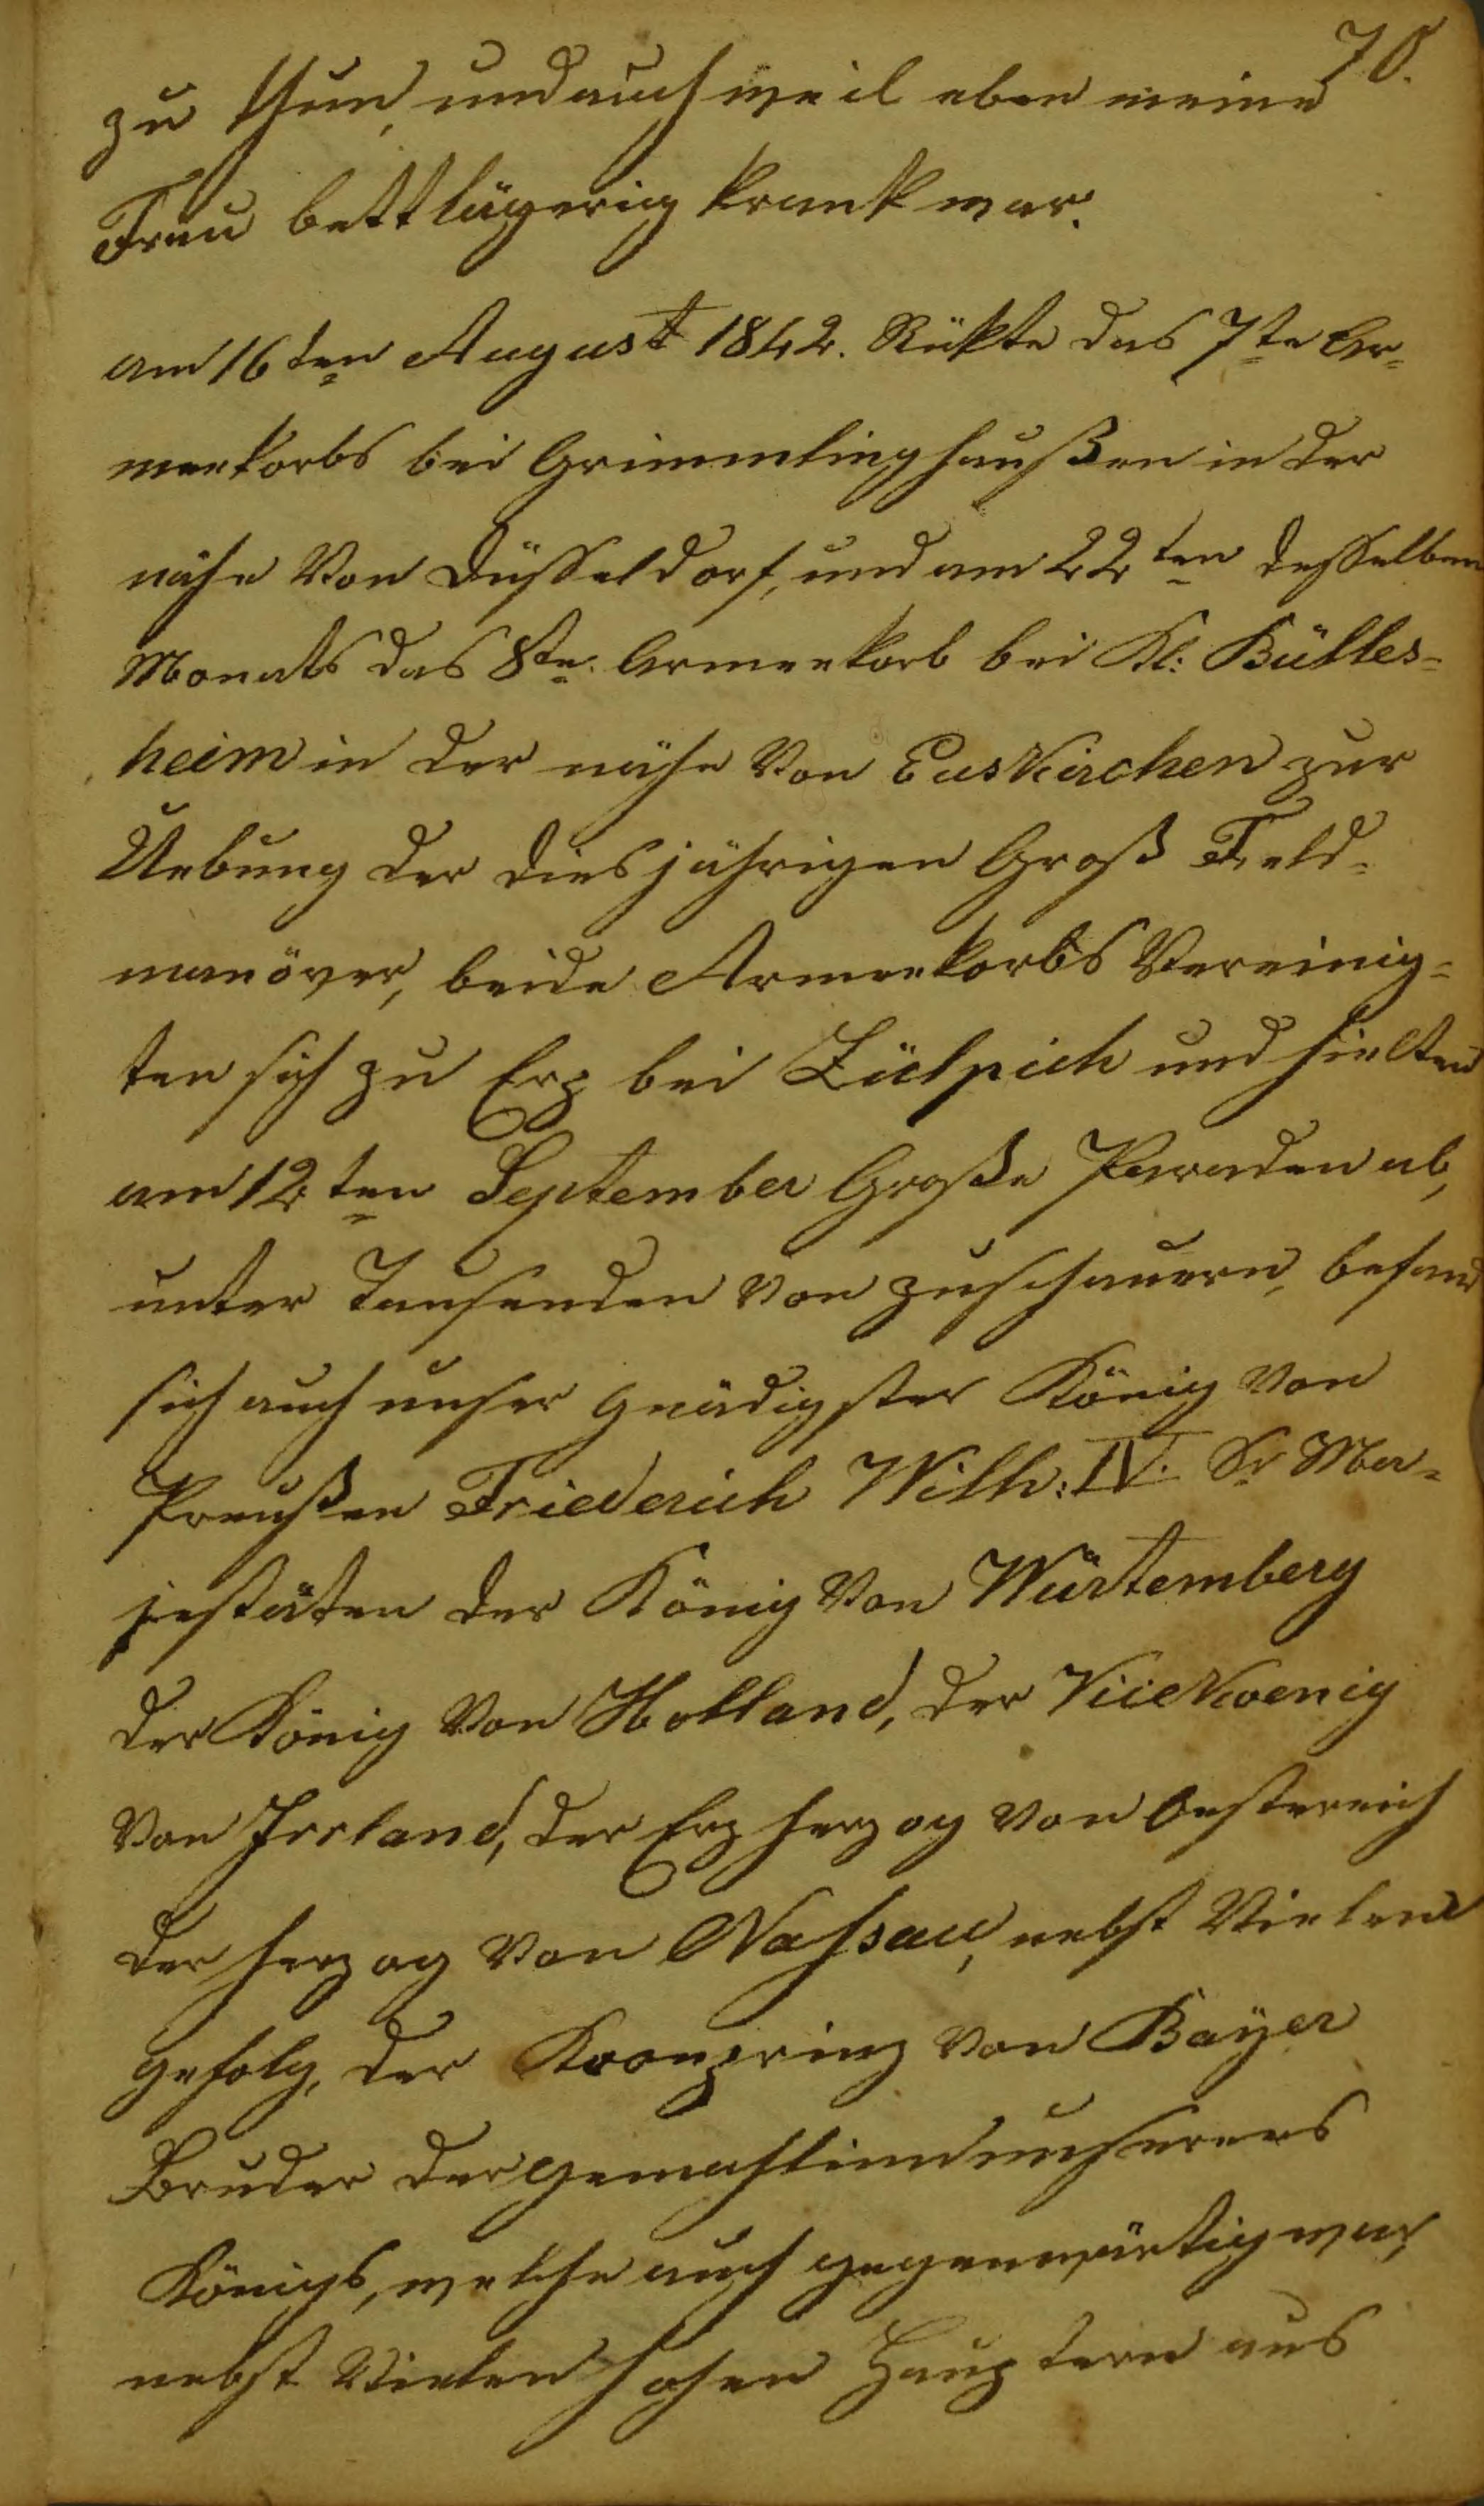 70.
zu thun, und auch weil eben meine
Frau bettlägerig krank war.
am 16ten August 1842. Rükte das 7te Ar=
meekorbs bei Grimmlinghaußen in der
nähe Von Düsseldorf, und am 22ten desselben
Monats das 8te. Armeekorb bei Kl: Bülles=
heim in der nähe Von Euskirchen zur
Uebung der diesjährigen Groß Feld=
manöver, beide Armeekorbs Vereinig=
ten sich zu Erp bei Zülpich und hielten
am 12ten September Große Paraden ab,
unter Tausenden Von zuschauern, befand
sich auch unser gnädigster König Von
Preußen Friederich Wilh: IV. Sr Ma=
jestäten der König Von Würtemberg
der König Von Holland, der Vicekoenig
Von Irrland, der Erzherzog Von Oestereich
der Herzog Von Nassau, nebst Vielen
gefolg, der Kronprinz Von Bayer
Bruder der gemahlinn unseres
Königs, welche auch gegenwärtig war,
nebst Vielen hohen Hauptern aus